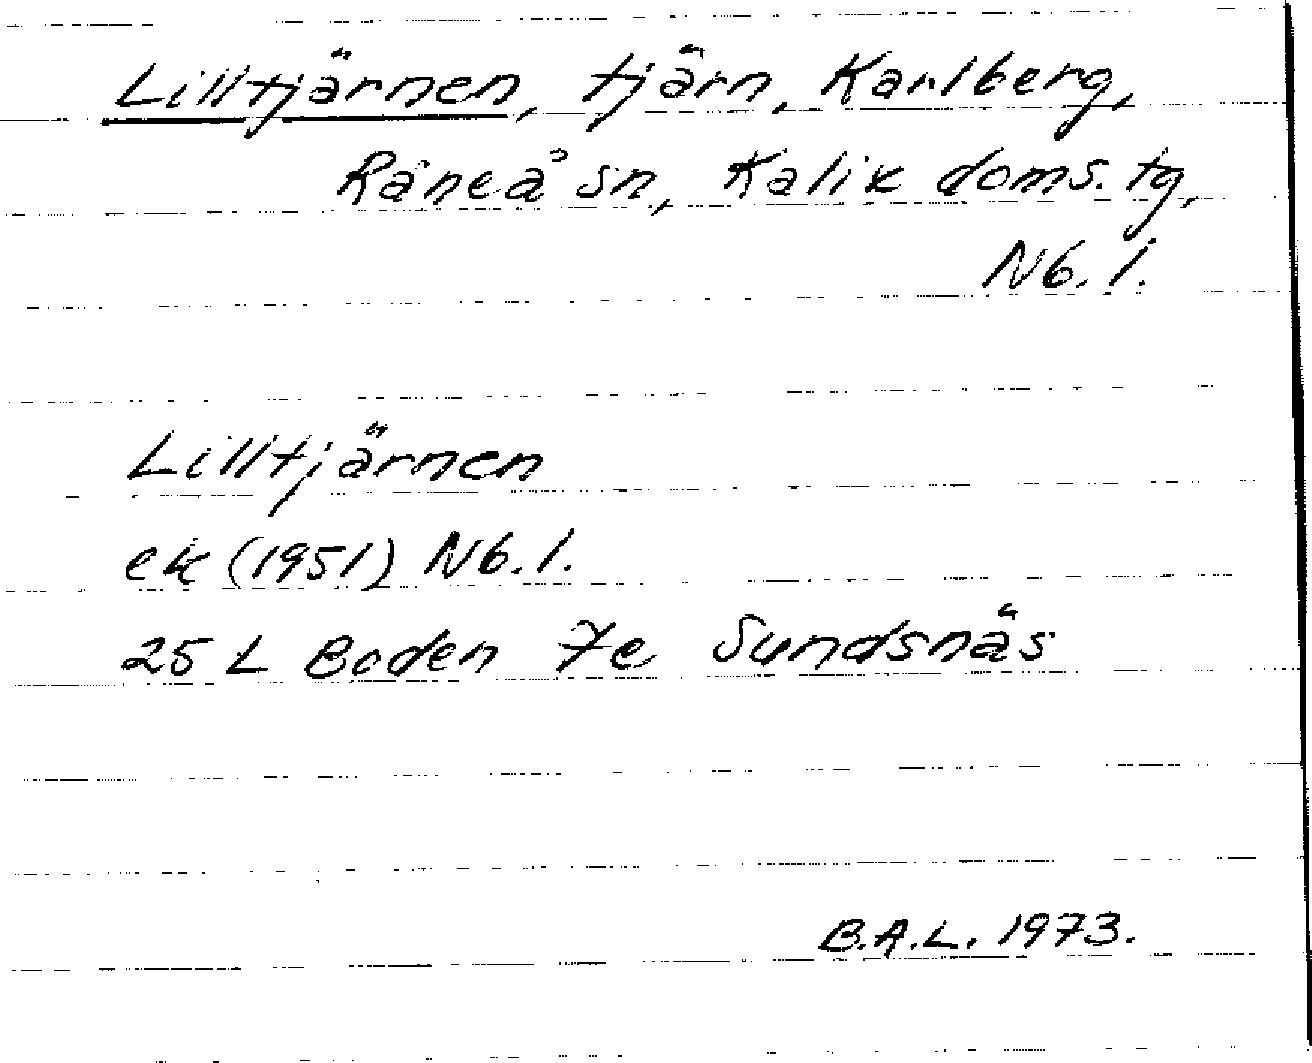 Lilltjärnen, tjärn, Karlberg,
Råneå sn, Kalix doms. tg,
Nb. l.
Lilltjärnen
ek (1951) Nb. l.
25 L Boden 7e Sundsnäs
B.A.L. 1973.